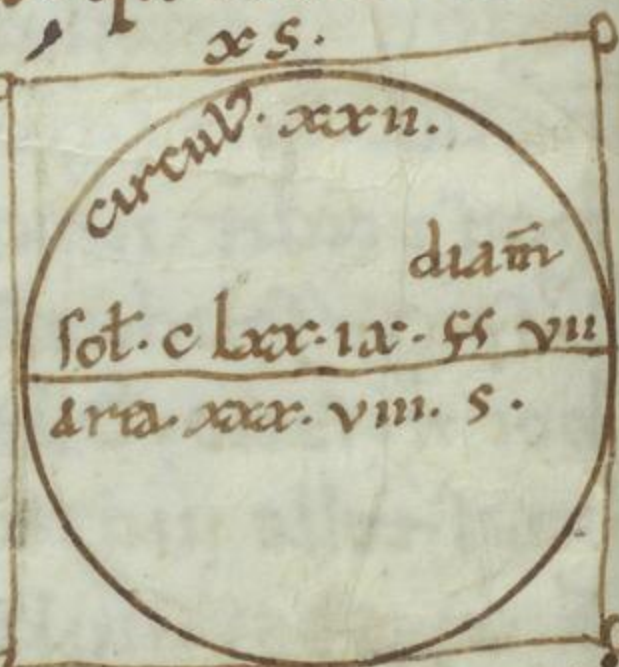 x s.
circul. xxii.
diam̄
sol. c lxx. ix. vii
area. xxx. viii. s.